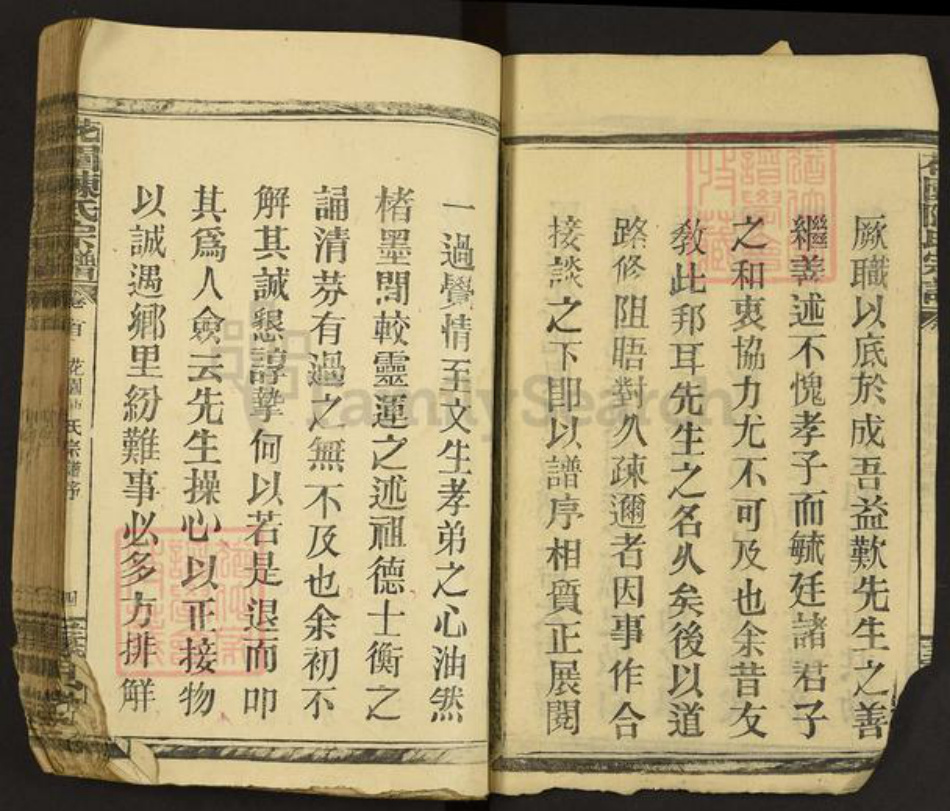 厥職以底於成吾益歎先生之善
繼善述不愧孝子而毓廷諸君子
之和衷協力尤不可及也余昔友
教此邦耳先生之名久矣後以道
路修阻晤對久疎邇者因事作合
接談之下即以譜序相質正展閱
一過覺情至文生孝弟之心油然
楮墨間較靈運之述祖德士衡之
誦清芬有過之無不及也余初不
解其誠懇諄摯何以若是退而叩
其爲人僉云先生操心以正接物
以誠遇鄉里紛難事必多方排解
花園陳氏宗譜
卷首
氏宗譜序
四
FamilySearch